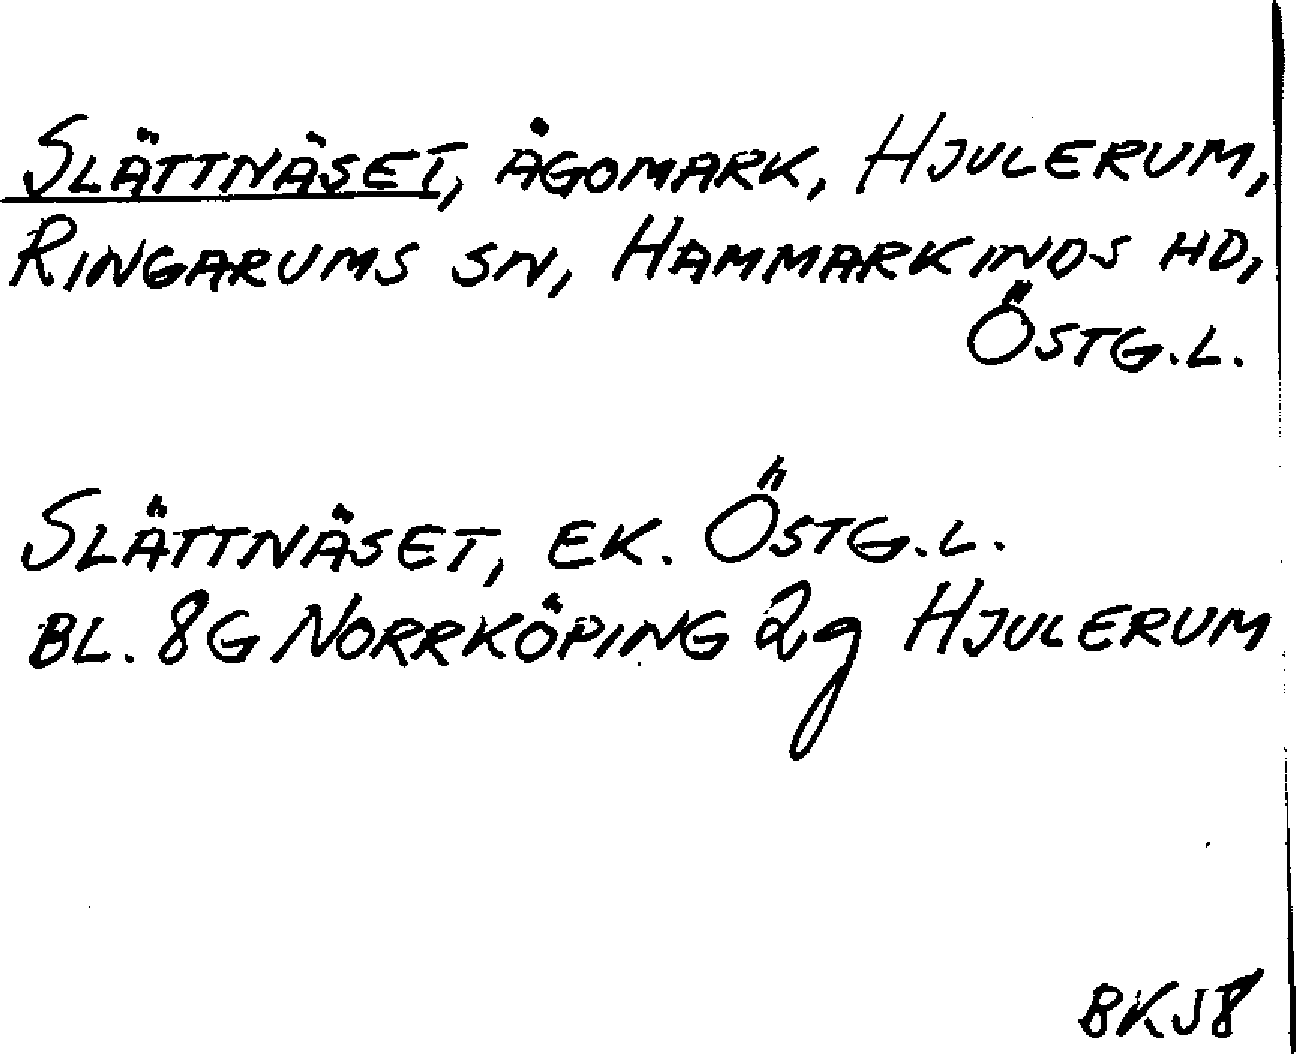 SLÄTTNÄSET, ÄGOMARK, HJULERUM,
RINGARUMS SN, HAMMARKINDS HD,
ÖSTG.L.
SLÄTTNÄSET, EK. ÖSTG.L.
BL. 8G NORRKÖPING 2g HJULERUM
BKJ8